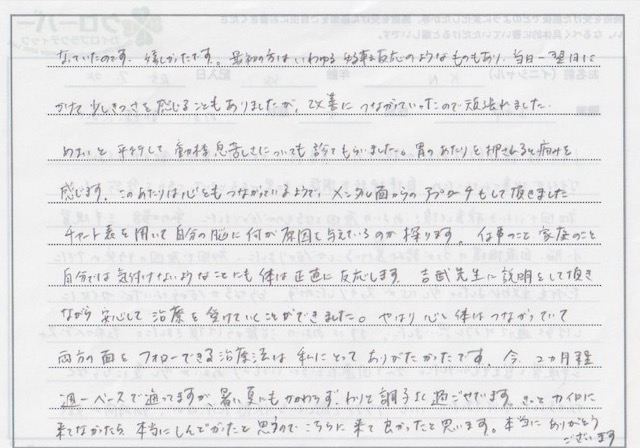 なっていたのです。嬉しかったです。最初の方はいわゆる好転反応のようなものもあり、当日〜翌日に
かけて少しきつさを感じることもありましたが、改善につながっていったので頑張れました。
めまいと平行して動悸息苦しさについても診てもらいました。胃のあたりを押されると痛みを
感じます。このあたりは心ともつながっているようで、メンタル面からのアプローチもして頂きました
チャート表を用いて自分の脳に何が原因を与えているのか探ります。仕事のこと家庭のこと
自分では気付けないようなことにも体は正直に反応します。吉武先生に説明をして頂き
ながら安心して治療を受けていくことができました。やはり心と体はつながっていて
両方の面をフォローできる治療法は私にとってありがたかったです。今、2ヵ月程
週一ペースで通ってますが、暑い夏にもかかわらず、わりと調子よく過ごせています。きっとカイロに
来てなかったら本当にしんどかったと思うのでこちらに来て良かったと思います。本当にありがとう
ございます